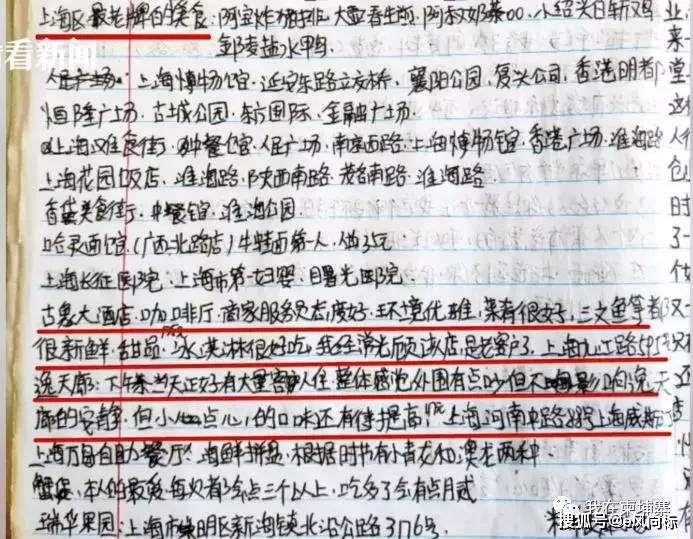 看看新闻
上海区最老牌的美食：阿宝炸猪排、大壶春生煎、阿叔奶茶00、小绍兴白斩鸡
邹凌盐水鸭
人民广场、上海博物馆、延安东路立交桥、襄阳公园、复兴公司、香港明都
恒隆广场、古城公园、东方国际、金融广场
上海美食街、中餐馆、人民广场、南京西路、上海博物馆、香港广场、淮海路
上海花园饭店、淮海路、陕西南路、茂名南路、淮海路
美食街、中餐馆、淮海公园
哈灵面馆、（广西北路店）牛蛙面第一人、做25元
上海长征医院、上海市第一妇婴、曙光医院
古象大酒店、咖啡厅、商家服务员态度好、环境优雅、菜肴很好、三文鱼等都
很新鲜、甜品、冰淇淋很好吃、我经常光顾该店、是老客户了、上海九江路595号
逸天廊：下午茶当天正好有大量客人入住、整体感觉外围有点吵但不影响逸天
廊的安静、但小点心的口味还有待提高、上海河南中路88号上海威斯汀
上海万自助餐厅：海鲜拼盘、根据时节有小青龙和澳龙两种
蟹，本人的最爱每次都会点三个以上、吃多了会有点月咸
瑞华果园：上海市崇明区新海镇北沿公路3176号
业
来
堂
人
仓
时
了
我在柬埔寨
搜狐号@风向标